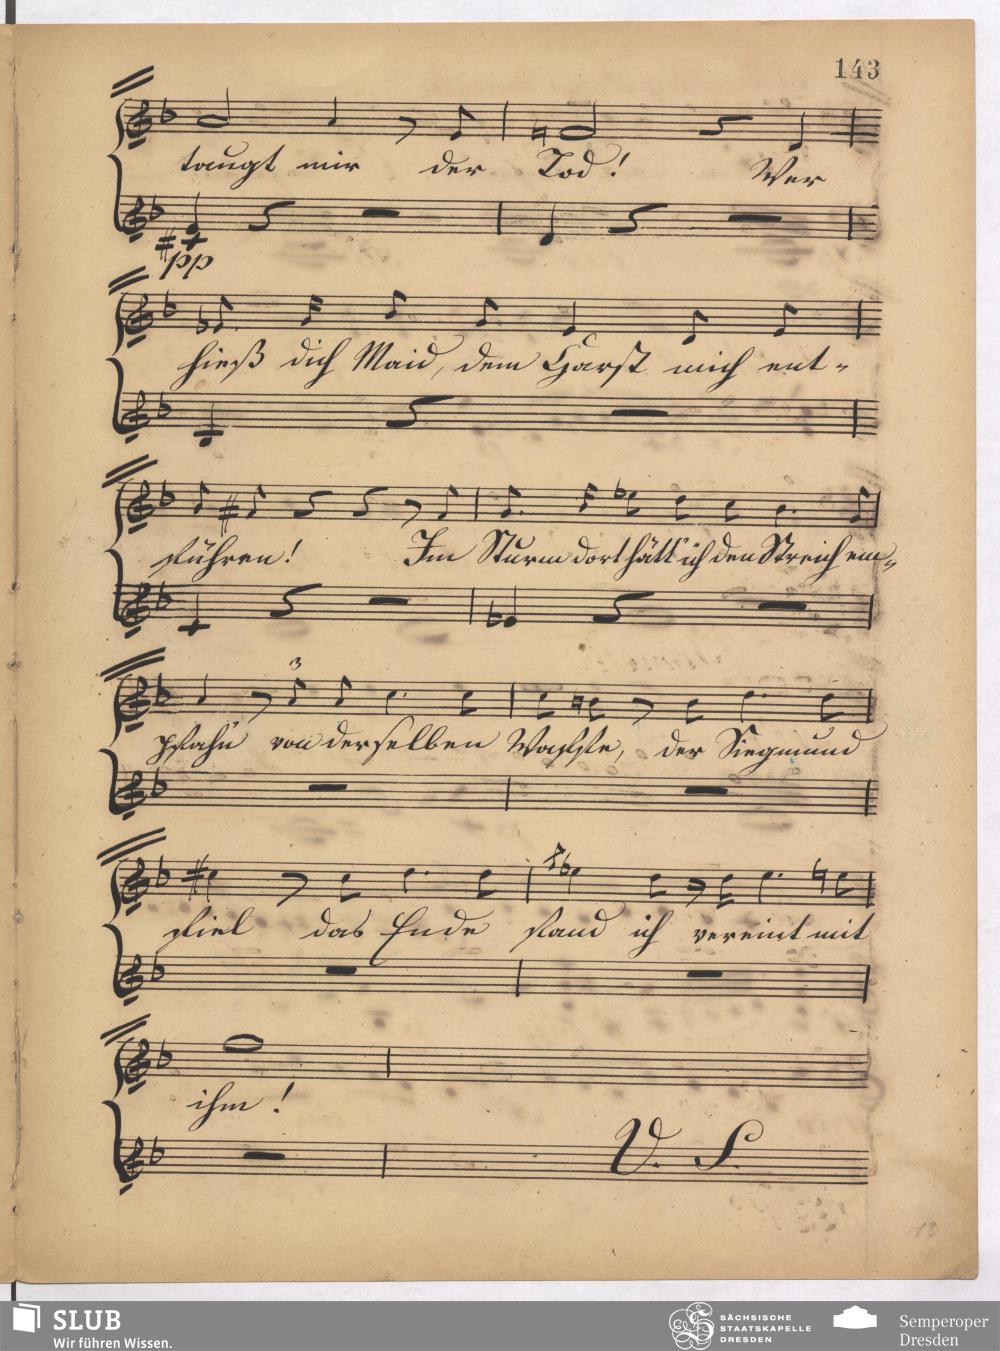 143
taugt mir der Tod! Wer
pp
hieß dich Maid, dem Harst mich ent-
führen! Im Sturm dort hätt' ich den Streich em-
3
pfah'n von derselben Waffe, der Siegmund
fiel das Ende fand ich vereint mit
ihm!
V. S.
12
SLUB
Wir führen Wissen.
SÄCHSISCHE
STAATSKAPELLE
DRESDEN
Semperoper
Dresden